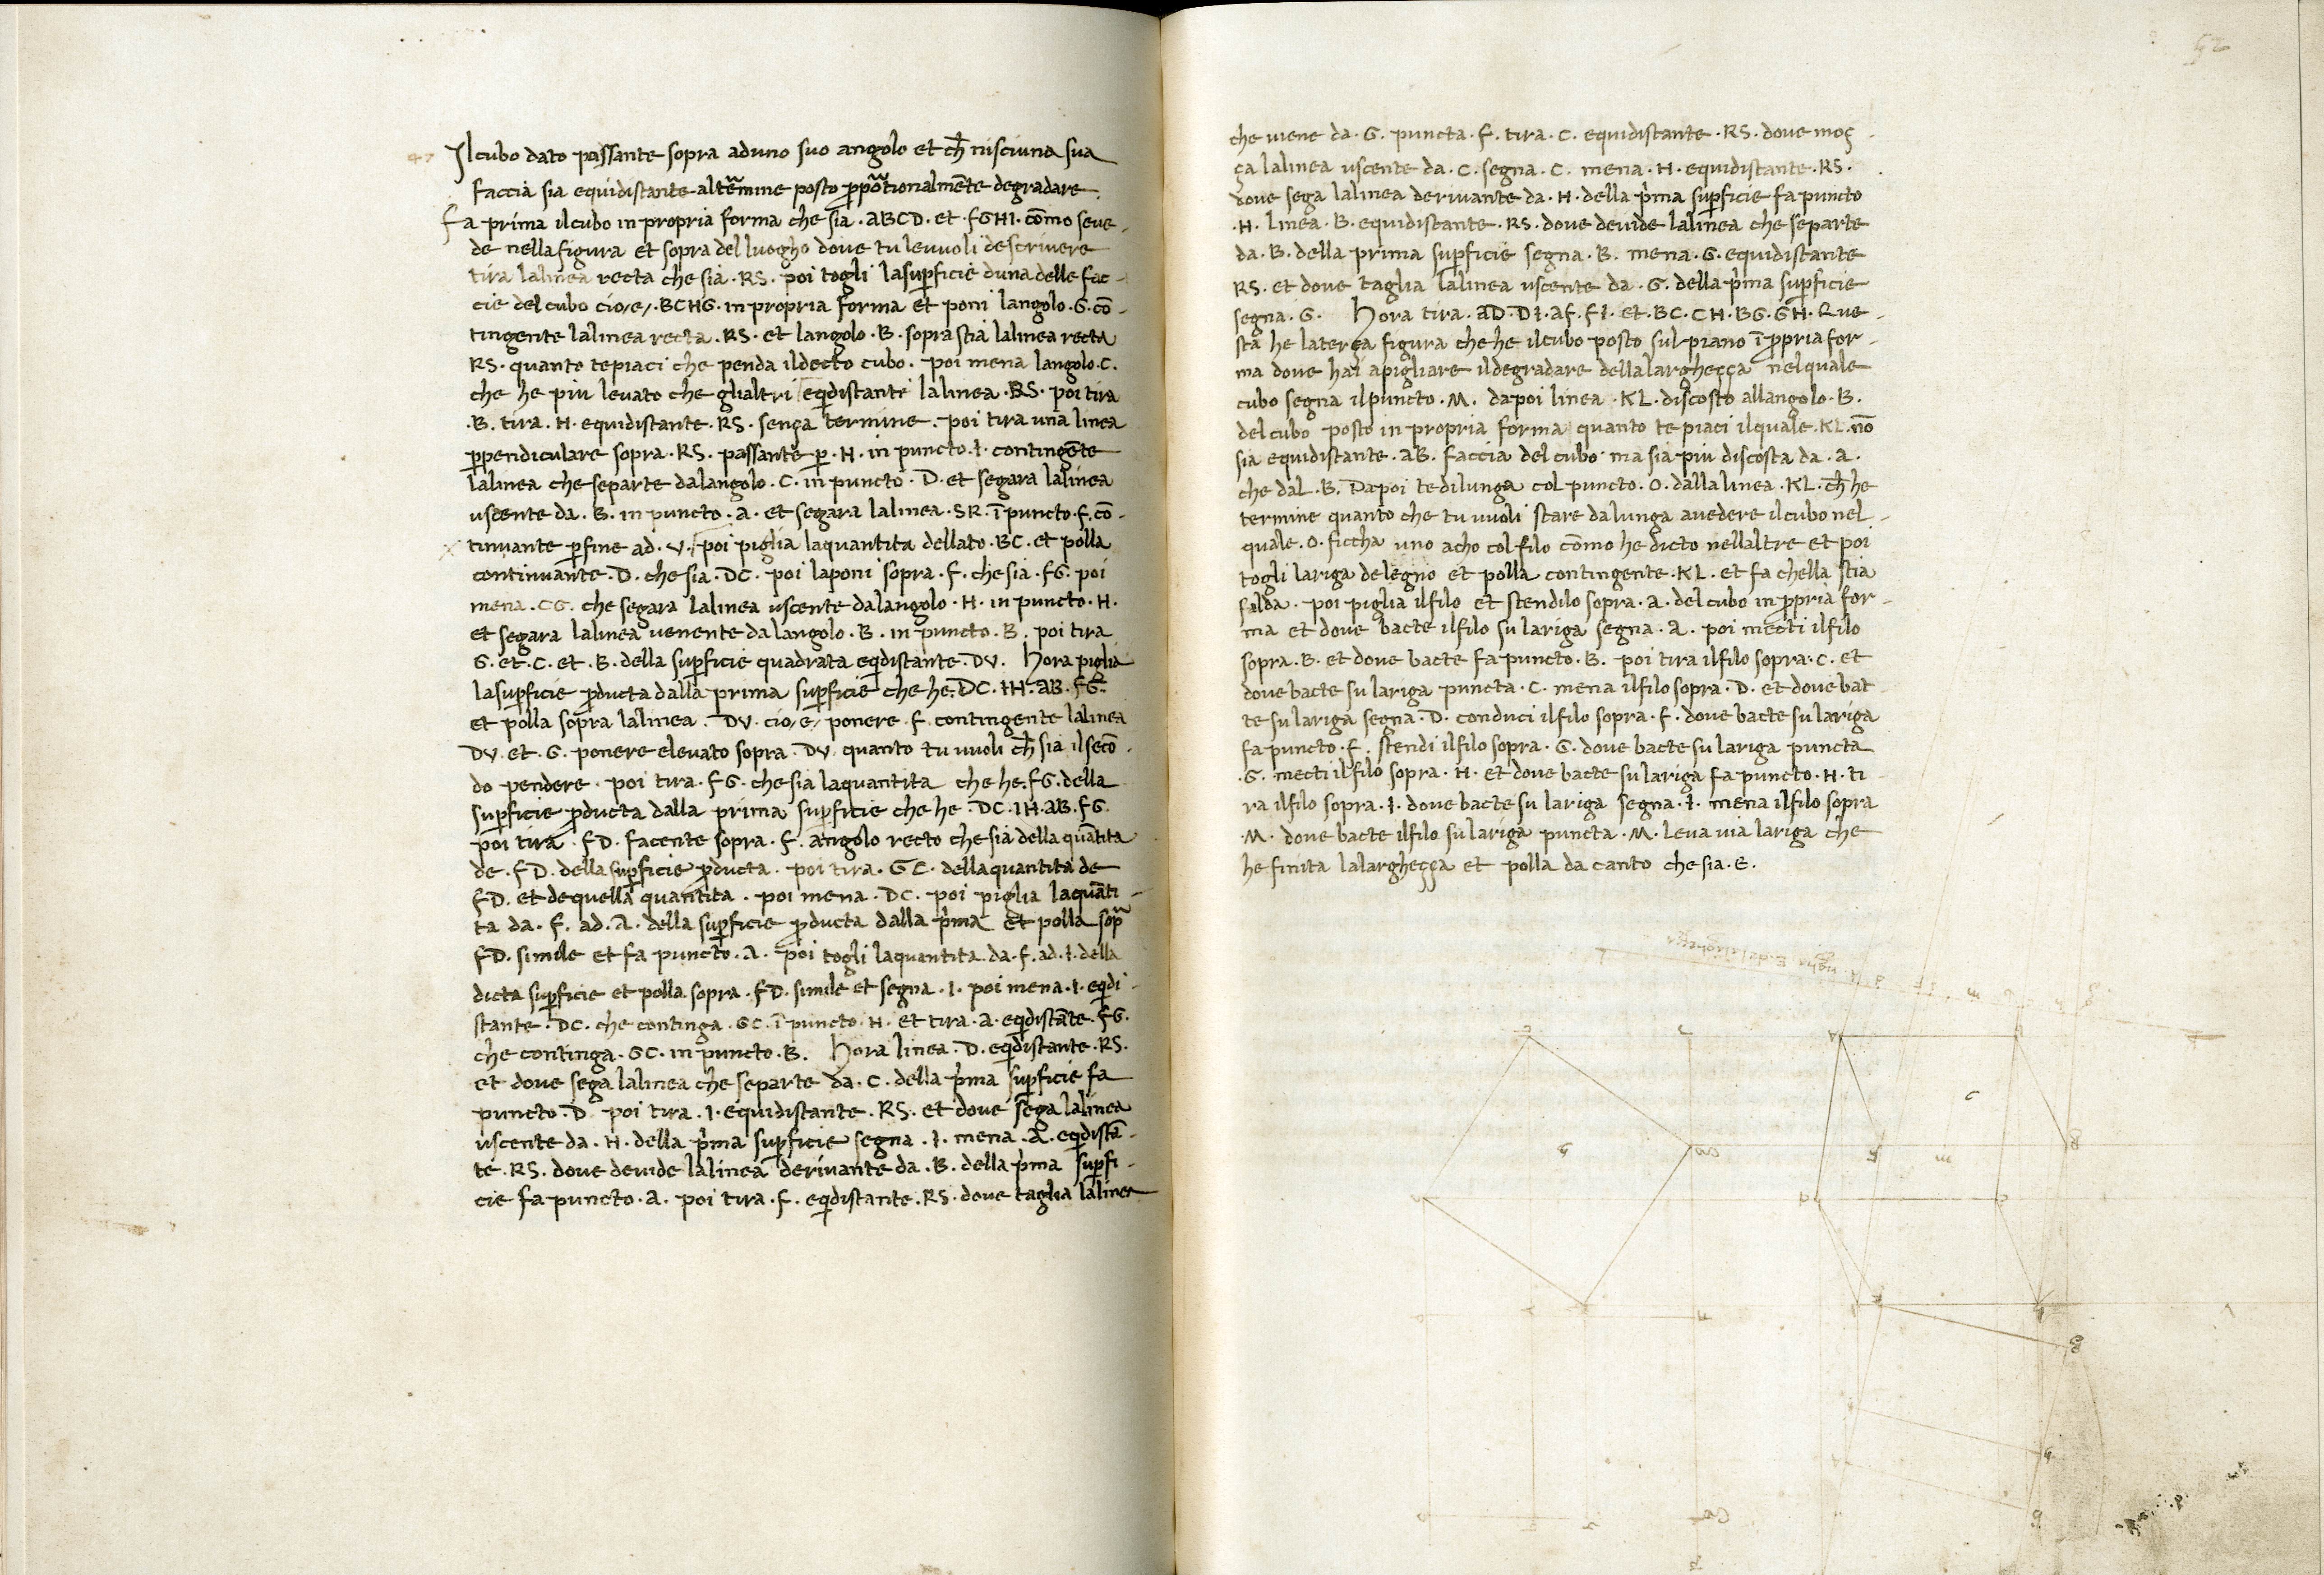 47
Il cubo dato passante sopra aduno suo angolo et ch̄ nisciuna sua
faccia sia equidistante altermine posto ꝓpōtionalmēte degradare
fa prima ilcubo in propria forma che sia . ABCD . et . FGHI . cōmo seve-
de nella figura et sopra del luogho dove tu levuoli descrivere
tira lalinea recta che sia . RS . poi togli lasuꝑficie duna delle fac-
cie del cubo cio/e/ . BCHG . in propria forma et poni langolo . G . cō-
tingente lalinea recta . RS . et langolo . B . soprastia lalinea recta
RS . quanto tepiaci che penda ildecto cubo . poi mena langolo . C .
che he piu levato che glialtri eqdistante lalinea . RS . poi tira
. B . tira . H . equidistante . RS . sença termine . poi tira una linea
ꝑpendiculare sopra . RS . passante ꝑ . H . in puncto . I . contingēte
lalinea che separte dalangolo . C . in puncto . D . et segara lalinea
uscente da . B . in puncto . A . et segara lalinea . SR . ī puncto . F . cō-
tinuante ꝑfine ad . V . poi piglia laquantita dellato . BC . et polla
continuante . D . che sia . DC . poi laponi sopra . F . che sia . FG . poi
mena . CG . che segara lalinea uscente dalangolo . H . in puncto . H .
et segara lalinea venente dalangolo . B . in puncto . B . poi tira
G . et . C . et . B . della suꝑficie quadrata eqdistante . DV . hora piglia
lasuꝑficie ꝓducta dalla prima suꝑficie che he . DC . IH . AB . FG .
et polla sopra lalinea . DV . cio/e/ ponere . F . contingente lalinea
DV . et . G . ponere elevato sopra . DV . quanto tu vuoli ch̄ sia ilsecō-
do pendere . poi tira . FG . che sia laquantita che he . FG . della
suꝑficie ꝓducta dalla prima suꝑficie che he . DC . IH . AB . FG .
poi tira . FD . facente sopra . F . angolo recto che sia della quātita
de . FD . della suꝑficie ꝓducta . poi tira . GC . dellaquantita de
FD . et dequella quantita . poi mena . DC . poi piglia laquāti-
ta da . F . ad . A . della suꝑficie ꝓducta dalla p̄ma et polla sop̄
FD . simile et fa puncto . A . poi togli laquantita da . F . ad . I . della
dicta suꝑficie et polla sopra . FD . simile et segna . I . poi mena . I . eqdi-
stante . DC . che continga . GC . ī puncto . H . et tira . A . eqdistāte . FG .
che continga . GC . in puncto . B . hora linea . D . eqdistante . RS .
et dove sega lalinea che separte da . C . della p̄ma suꝑficie fa
puncto . D poi tira . I . equidistante . RS . et dove sega lalinea
uscente da . H . della p̄ma suꝑficie segna . I . mena . A . eqdistā-
te . RS . dove devide lalinea derivante da . B . della p̄ma suꝑfi-
cie fa puncto . A . poi tira . F . eqdistante . RS . dove taglia lalinea
52
che viene da . G . puncta . F . tira . C . equidistante . RS . dove moç-
ça lalinea uscente da . C . segna . C . mena . H . equidistante . RS .
dove sega lalinea derivante da . H . della p̄ma suꝑficie fa puncto
. H . linea . B . equidistante . RS . dove devide lalinea che separte
da . B . della prima suꝑficie segna . B . mena . G . equidistante
RS . et dove taglia lalinea uscente da . G . della p̄ma suꝑficie
segna . G . hora tira . AD . DI . AF . FI . et . BC . CH . BG . GH . Que-
sta he laterça figura che he ilcubo posto sulpiano ī ꝓpria for-
ma dove hai apigliare ildegradare dellalargheçça nelquale
cubo segna ilpuncto . M . dapoi linea . KL . discosto allangolo . B .
del cubo posto in propria forma quanto te piaci ilquale . KL . nō
sia equidistante . AB . faccia del cubo ma sia piu discosta da . A .
che dal . B . Dapoi tedilunga col puncto . O . dallalinea . KL . ch̄ he
termine quanto che tu vuoli stare dalunga avedere ilcubo nel-
quale . O . ficcha uno acho col filo cōmo he dicto nellaltre et poi
togli lariga delegno et polla contingente . KL . et fa chella stia
salda . poi piglia ilfilo et stendilo sopra . A . del cubo in ꝓpria for-
ma et dove bacte ilfilo su lariga segna . A . poi mecti ilfilo
sopra . B . et dove bacte fa puncto . B . poi tira ilfilo sopra . C . et
dove bacte su lariga puncta . C . mena ilfilo sopra . D . et dove bac-
te su lariga segna . D . conduci ilfilo sopra . F . dove bacte su lariga
fa puncto . F . stendi ilfilo sopra . G . dove bacte su lariga puncta
. G . mecti ilfilo sopra . H . et dove bacte su lariga fa puncto . H . ti-
ra ilfilo sopra . I . dove bacte su lariga segna . I . mena ilfilo sopra
. M . dove bacte ilfilo su lariga puncta . M . leva via lariga che
he finita lalargheçça et polla da canto che sia . E .